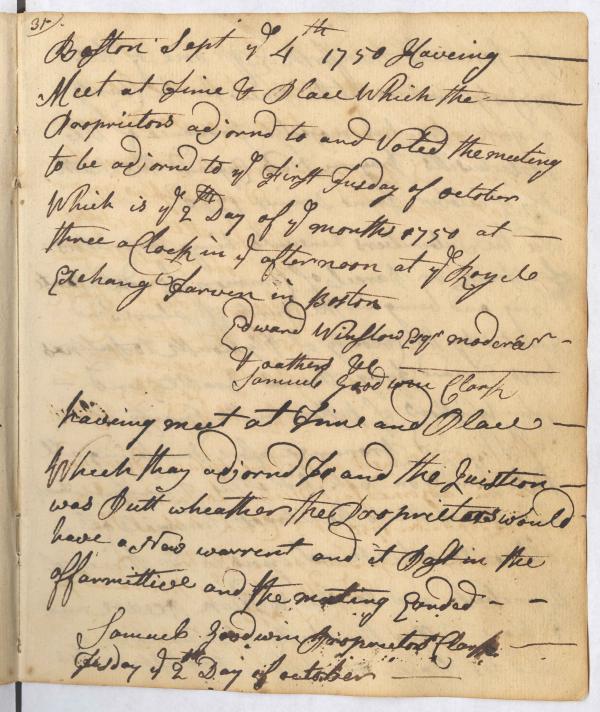 31
Boston Sept ye 4th 1750 Haveing
Meet at Time & Place Which the
Proprietors adjornd to and Voted the meeting
to be adjornd to ye First Tusday of october
Which is ye 2th Day of ye month 1750 at
three a Clock in ye afternoon at ye Royele
Exchang Tarven in Boston
Edward Winslow Esqr moderar
Samuel Goodwin Clark
haveing meet at Time and Place
Which thay adjornd To and the Quistion
was Putt wheather the Proprietors would
have a New warrent and it Past in the
affarmittive and the meeting Ended
Samuel Goodwin Proprietors Clark
Tusday ye 2th Day of october